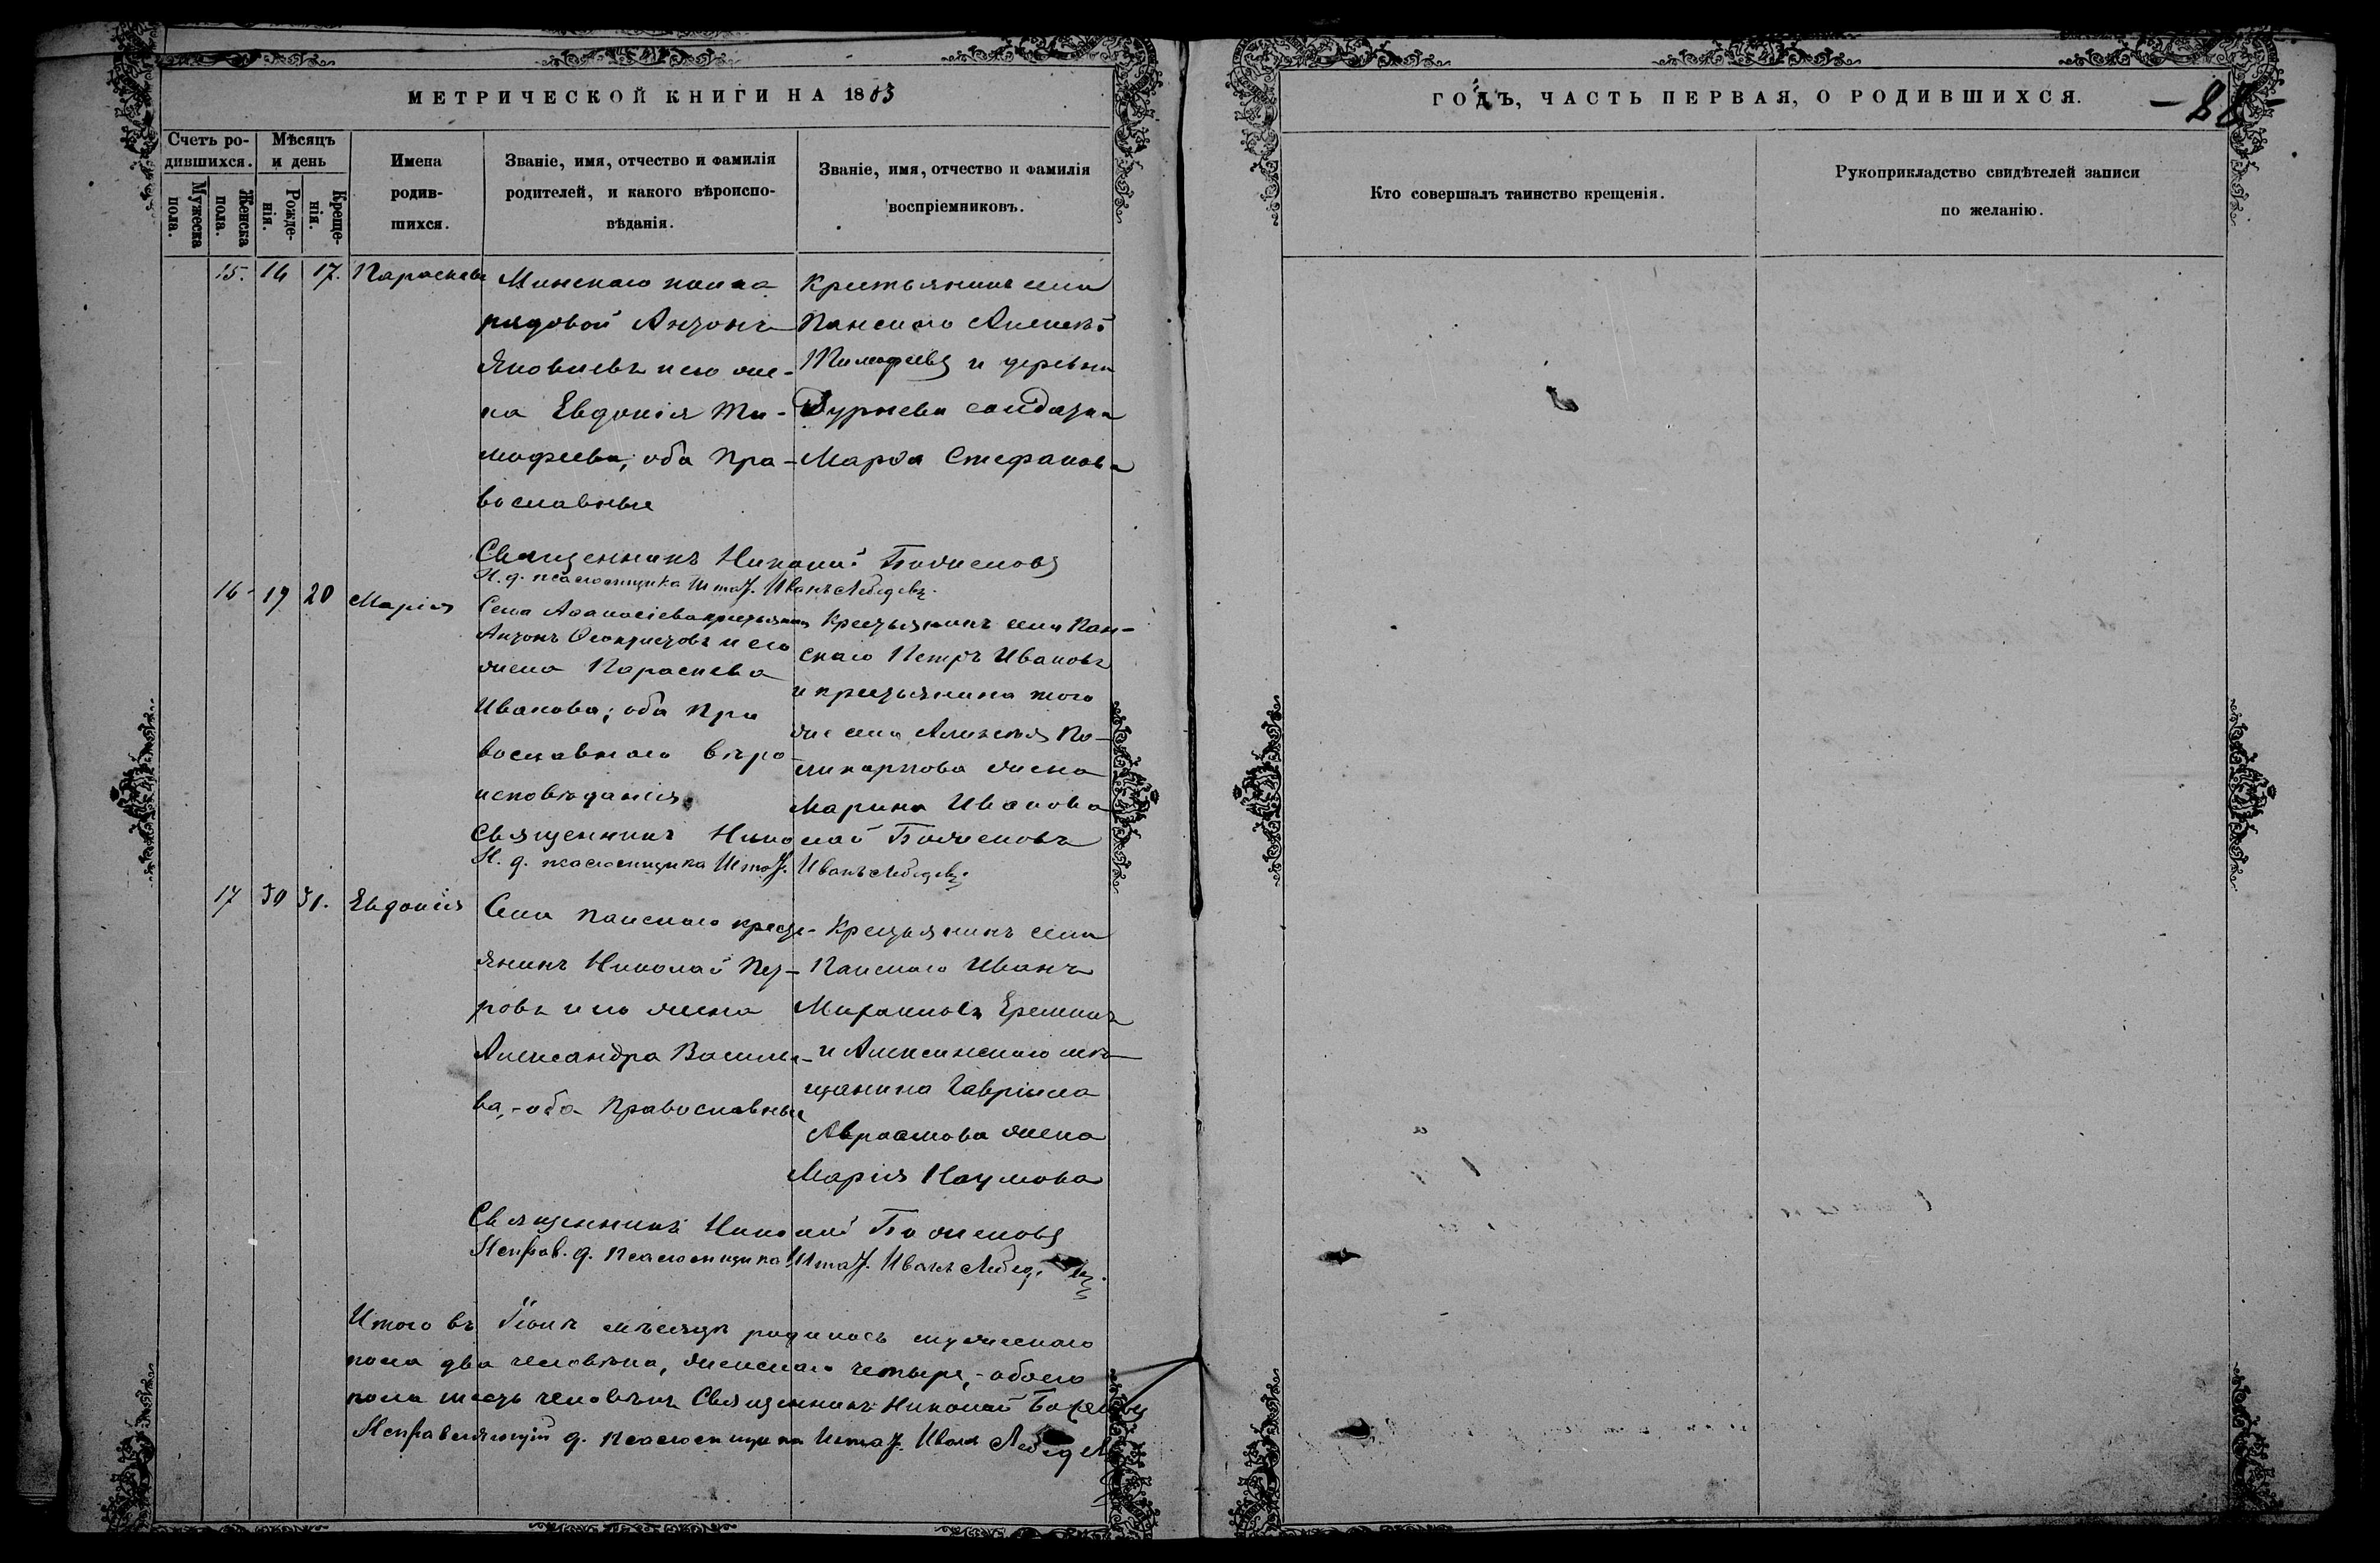 МЕТРИЧЕСКОЙ КНИГИ НА 1883
ГОДЪ, ЧАСТЬ ПЕРВАЯ, О РОДИВШИХСЯ.
Счетъ ро-
дившихся.
Мужеска
пола.
Женска
пола.
Мѣсяцъ
и день
Рожде-
нія.
Креще-
нія.
Имена
родив-
шихся.
Званіе, имя, отчество и фамилія
родителей, и какого вѣроиспо-
вѣданія.
Званіе, имя, отчество и фамилія
воспріемниковъ.
Кто совершалъ таинство крещенія.
Рукоприкладство свидѣтелей записи
по желанію.
15. 16 17. Параскева
Минскаго полка
рядовой Антонъ
Яковлевъ и его же-
на Евдокія Ти-
мофеева; оба Пра-
вославные
Крестьянинъ села
Панскаго Алексѣй
Тимофеевъ и деревни
солдатка
Марфа Стефанова
Священникъ Николай Боженовъ
И. д. псаломщика Штат. Иванъ Лебедевъ.
16 19 20 Марія
Села Афанасіева крестьянинъ
Антонъ и его
жена Параскева
Иванова; оба Пра
вославнаго вѣро-
исповѣданія.
Крестьянинъ села Пан-
скаго Петръ Ивановъ
и крестьянина того
же села Алексѣя По-
ликарпова жена
Марина Иванова
Священникъ Николай Боженовъ
И. д. псаломщика Штат. Иванъ Лебедевъ.
17 30 31. Евдокія
Села Панскаго кресть-
янинъ Николай Пет-
ровъ и его жена
Александра Василье-
ва, - оба Православные
Крестьянинъ села
Панскаго Иванъ
Михаиловъ Ереминъ
и Алексинскаго мѣ-
щанина Гавріила
Авраамова жена
Марія Наумова
Священникъ Николай Боженовъ
Исправ. д. Псаломщика Штат. Иванъ Лебедевъ.
Итого въ Іюлѣ мѣсяцѣ родилось мужескаго
пола два человѣка, женскаго четыре, - обоего
пола шесть человѣкъ Священникъ Николай Боженовъ
Исправляющій д. Псаломщика Штат. Иванъ Лебедевъ